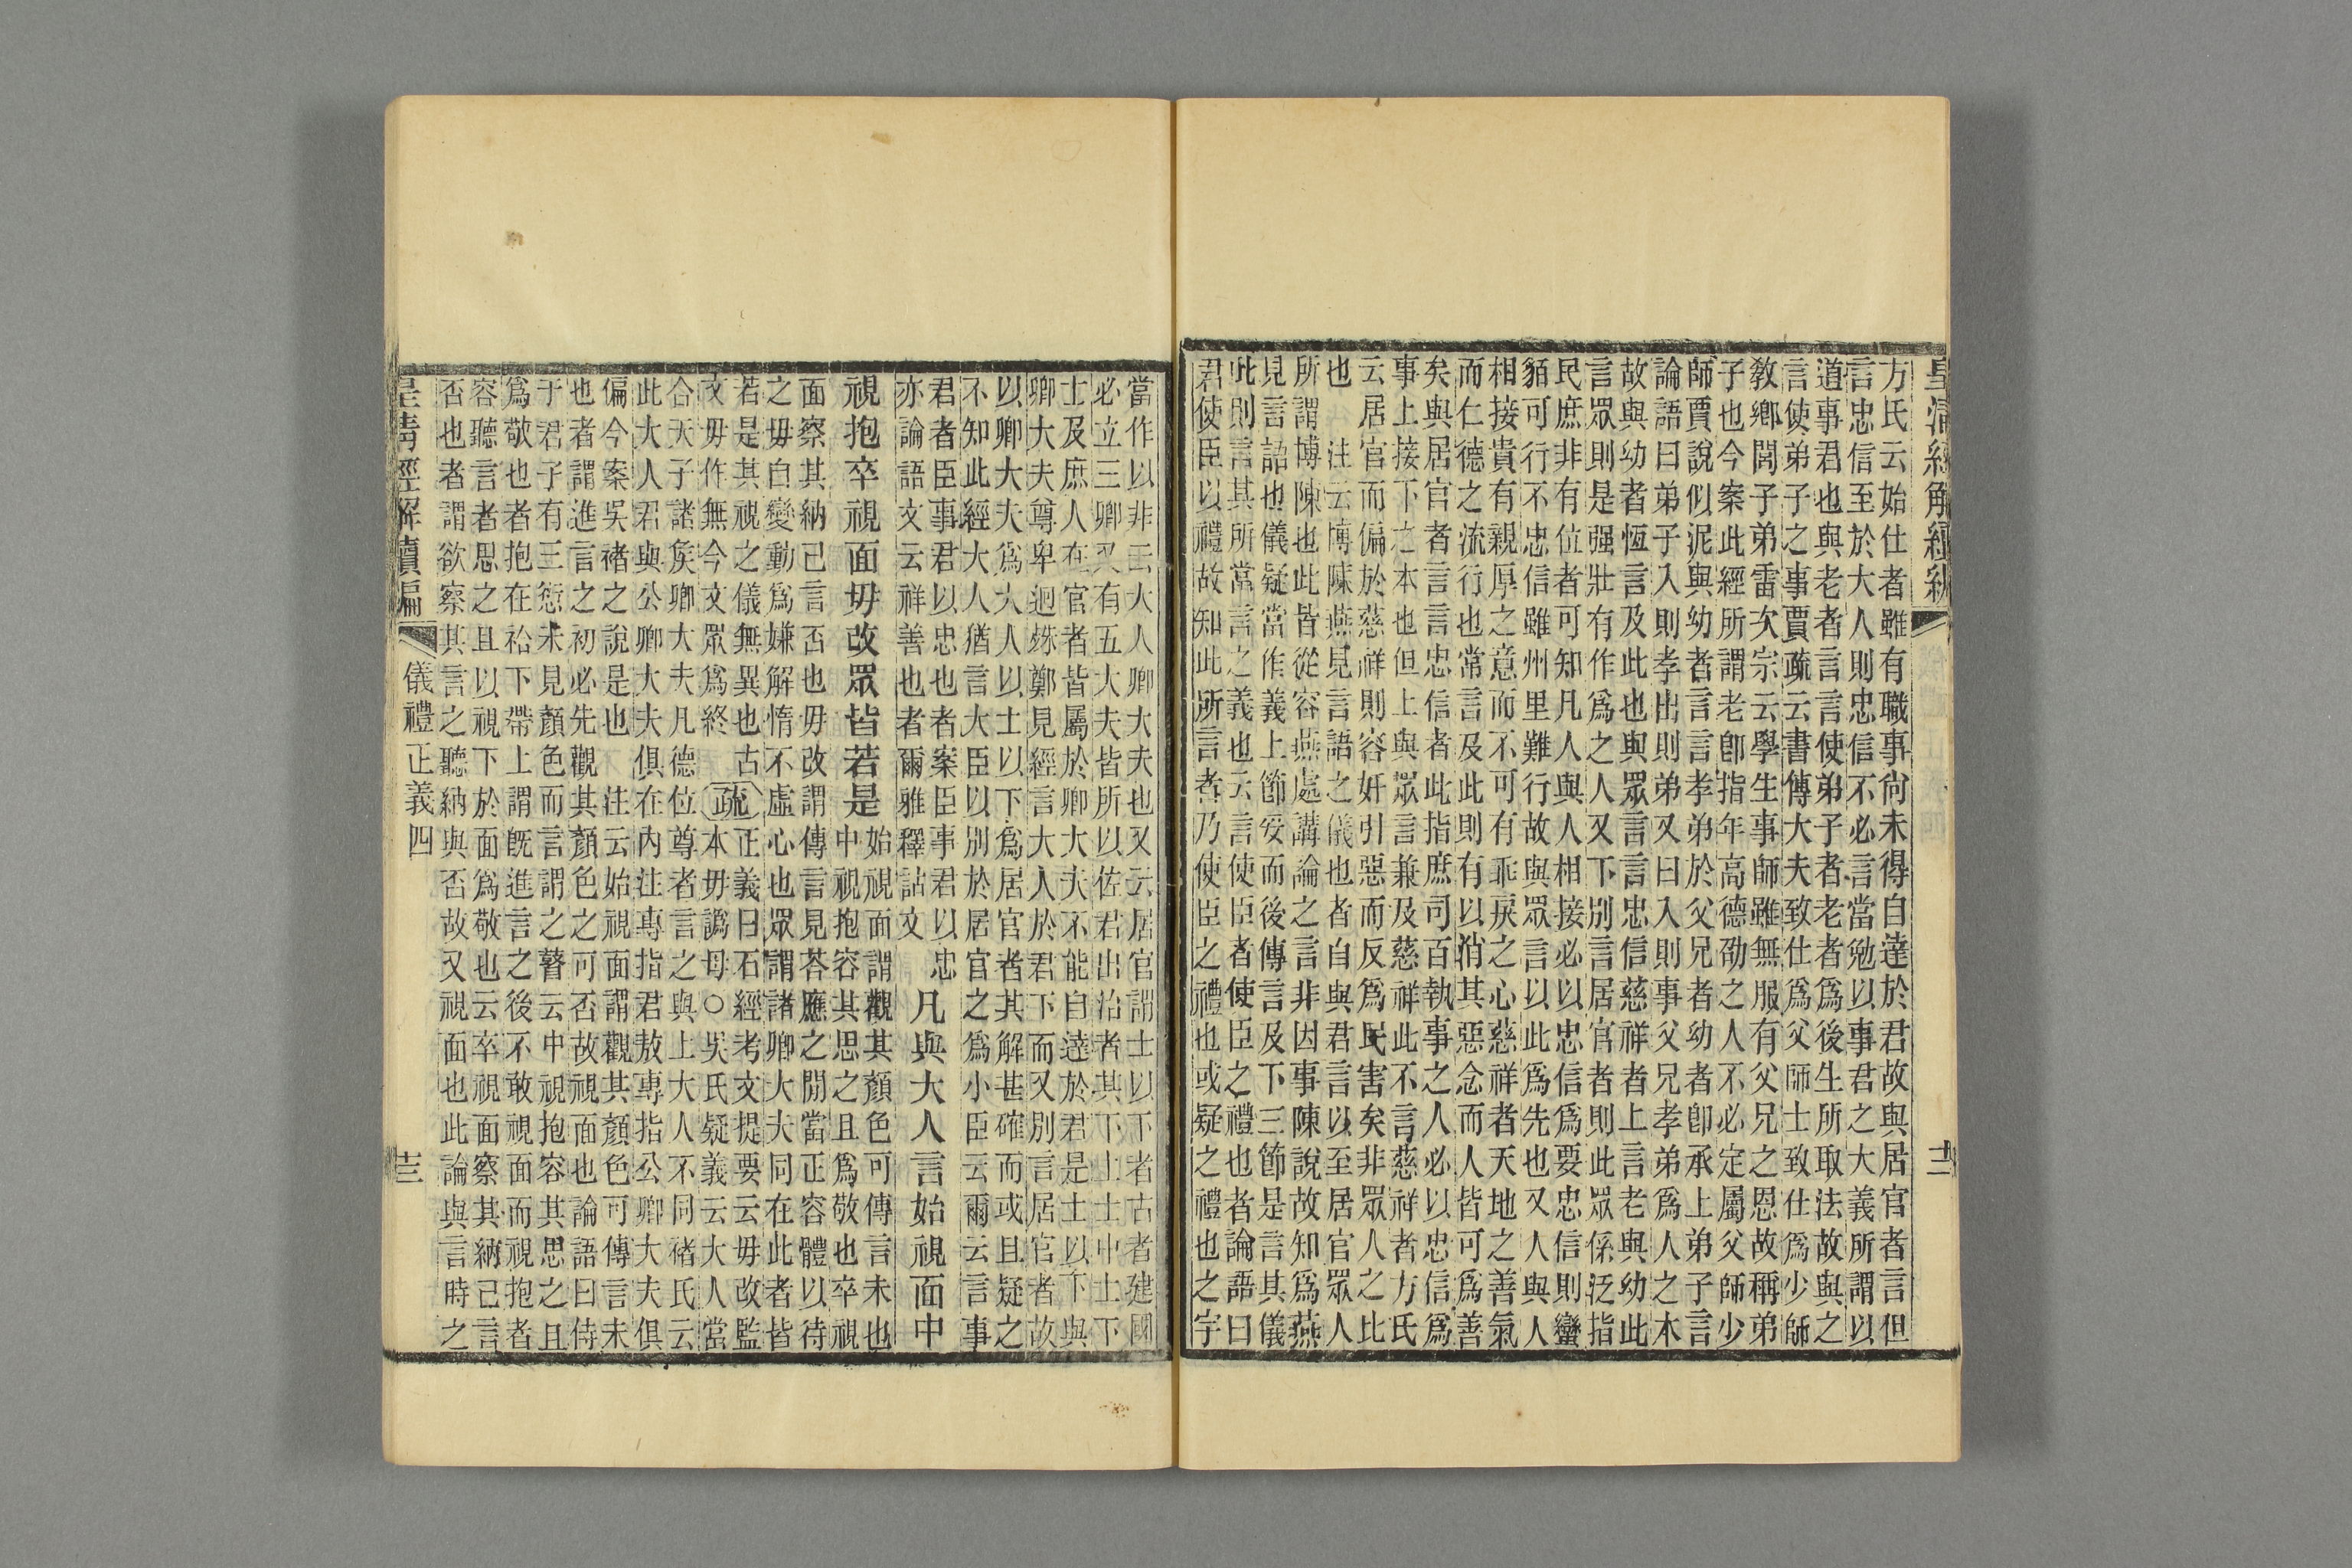 方氏云始仕者雖有職事尙未得自達於君故與居官者言但
言忠信至於大人則忠信不必言當勉以事君之大義所謂以
道事君也與老者言言使弟子者老者爲後生所取法故與之
言使弟子之事賈疏云書傳大夫致仕爲父師士致仕爲少師
敎鄉閭子弟雷次宗云學生事師雖無服有父兄之恩故稱弟
子也今案此經所謂老卽指年高德劭之人不必定屬父師少
師賈說似泥與幼者言言孝弟於父兄者幼者卽承上弟子言
論語曰弟子入則孝出則弟又曰入則事父兄孝弟爲人之本
故與幼者恆言及此也與眾言言忠信慈祥者上言老與幼此
言眾則是强壯有作爲之人又下別言居官者則此眾係泛指
民庶非有位者可知凡人與人相接必以忠信爲要忠信則蠻
貊可行不忠信雖州里難行故與眾言以此爲先也又人與人
相接貴有親厚之意而不可有乖戾之心慈祥者天地之善氣
而仁德之流行也常言及此則有以消其惡念而人皆可爲善
矣與居官者言言忠信者此指庶司百執事之人必以忠信爲
事上接下之本也但上與眾言兼及慈祥此不言慈祥者方氏
云居官而偏於慈祥則容奸引惡而反爲民害矣非眾人之比
也　注云博陳燕見言語之儀也者自與君言以至居官眾人
所謂博陳也此皆從容燕處講論之言非因事陳說故知爲燕
見言語也儀疑當作義上節妥而後傳言及下三節是言其儀
此則言其所當言之義也云言使臣者使臣之禮也者論語曰
君使臣以禮故知此所言者乃使臣之禮也或疑之禮也之字
皇清經解經編
十二
當作以非云大人卿大夫也又云居官謂士以下者古者建國
必立三卿又有五大夫皆所以佐君出治者其下上士中士下
士及庶人在官者皆屬於卿大夫不能自達於君是士以下與
卿大夫尊卑迥殊鄭見經言大人於君下而又別言居官者故
以卿大夫爲大人以士以下爲居官者其解甚確而或且疑之
不知此經大人猶言大臣以別於居官之爲小臣云爾云言事
君者臣事君以忠也者案臣事君以忠
亦論語文云祥善也者爾雅釋詁文　凡與大人言始視面中
視抱卒視面毋改眾皆若是始視面謂觀其顏色可傳言未也
中視抱容其思之且爲敬也卒視
面察其納己言否也毋改謂傳言見荅應之閒當正容體以待
之毋自變動爲嫌解惰不虛心也眾謂諸卿大夫同在此者皆
若是其視之儀無異也古
文毋作無今文眾爲終　疏正義曰石經考文提要云毋改監
本毋譌母○吳氏疑義云大人當
合天子諸矦卿大夫凡德位尊者言之與上大人不同褚氏云
此大人君與公卿大夫俱在內注專指君敖專指公卿大夫俱
偏今案吳褚之說是也　注云始視面謂觀其顏色可傳言未
也者謂進言之初必先觀其顏色之可否故視面也論語曰侍
于君子有三愆未見顏色而言謂之瞽云中視抱容其思之且
爲敬也者抱在袷下帶上謂旣進言之後不敢視面而視抱者
容聽言者思之且以視下於面爲敬也云卒視面察其納己言
否也者謂欲察其言之聽納與否故又視面也此論與言時之
皇清經解續編　儀禮正義四　十三